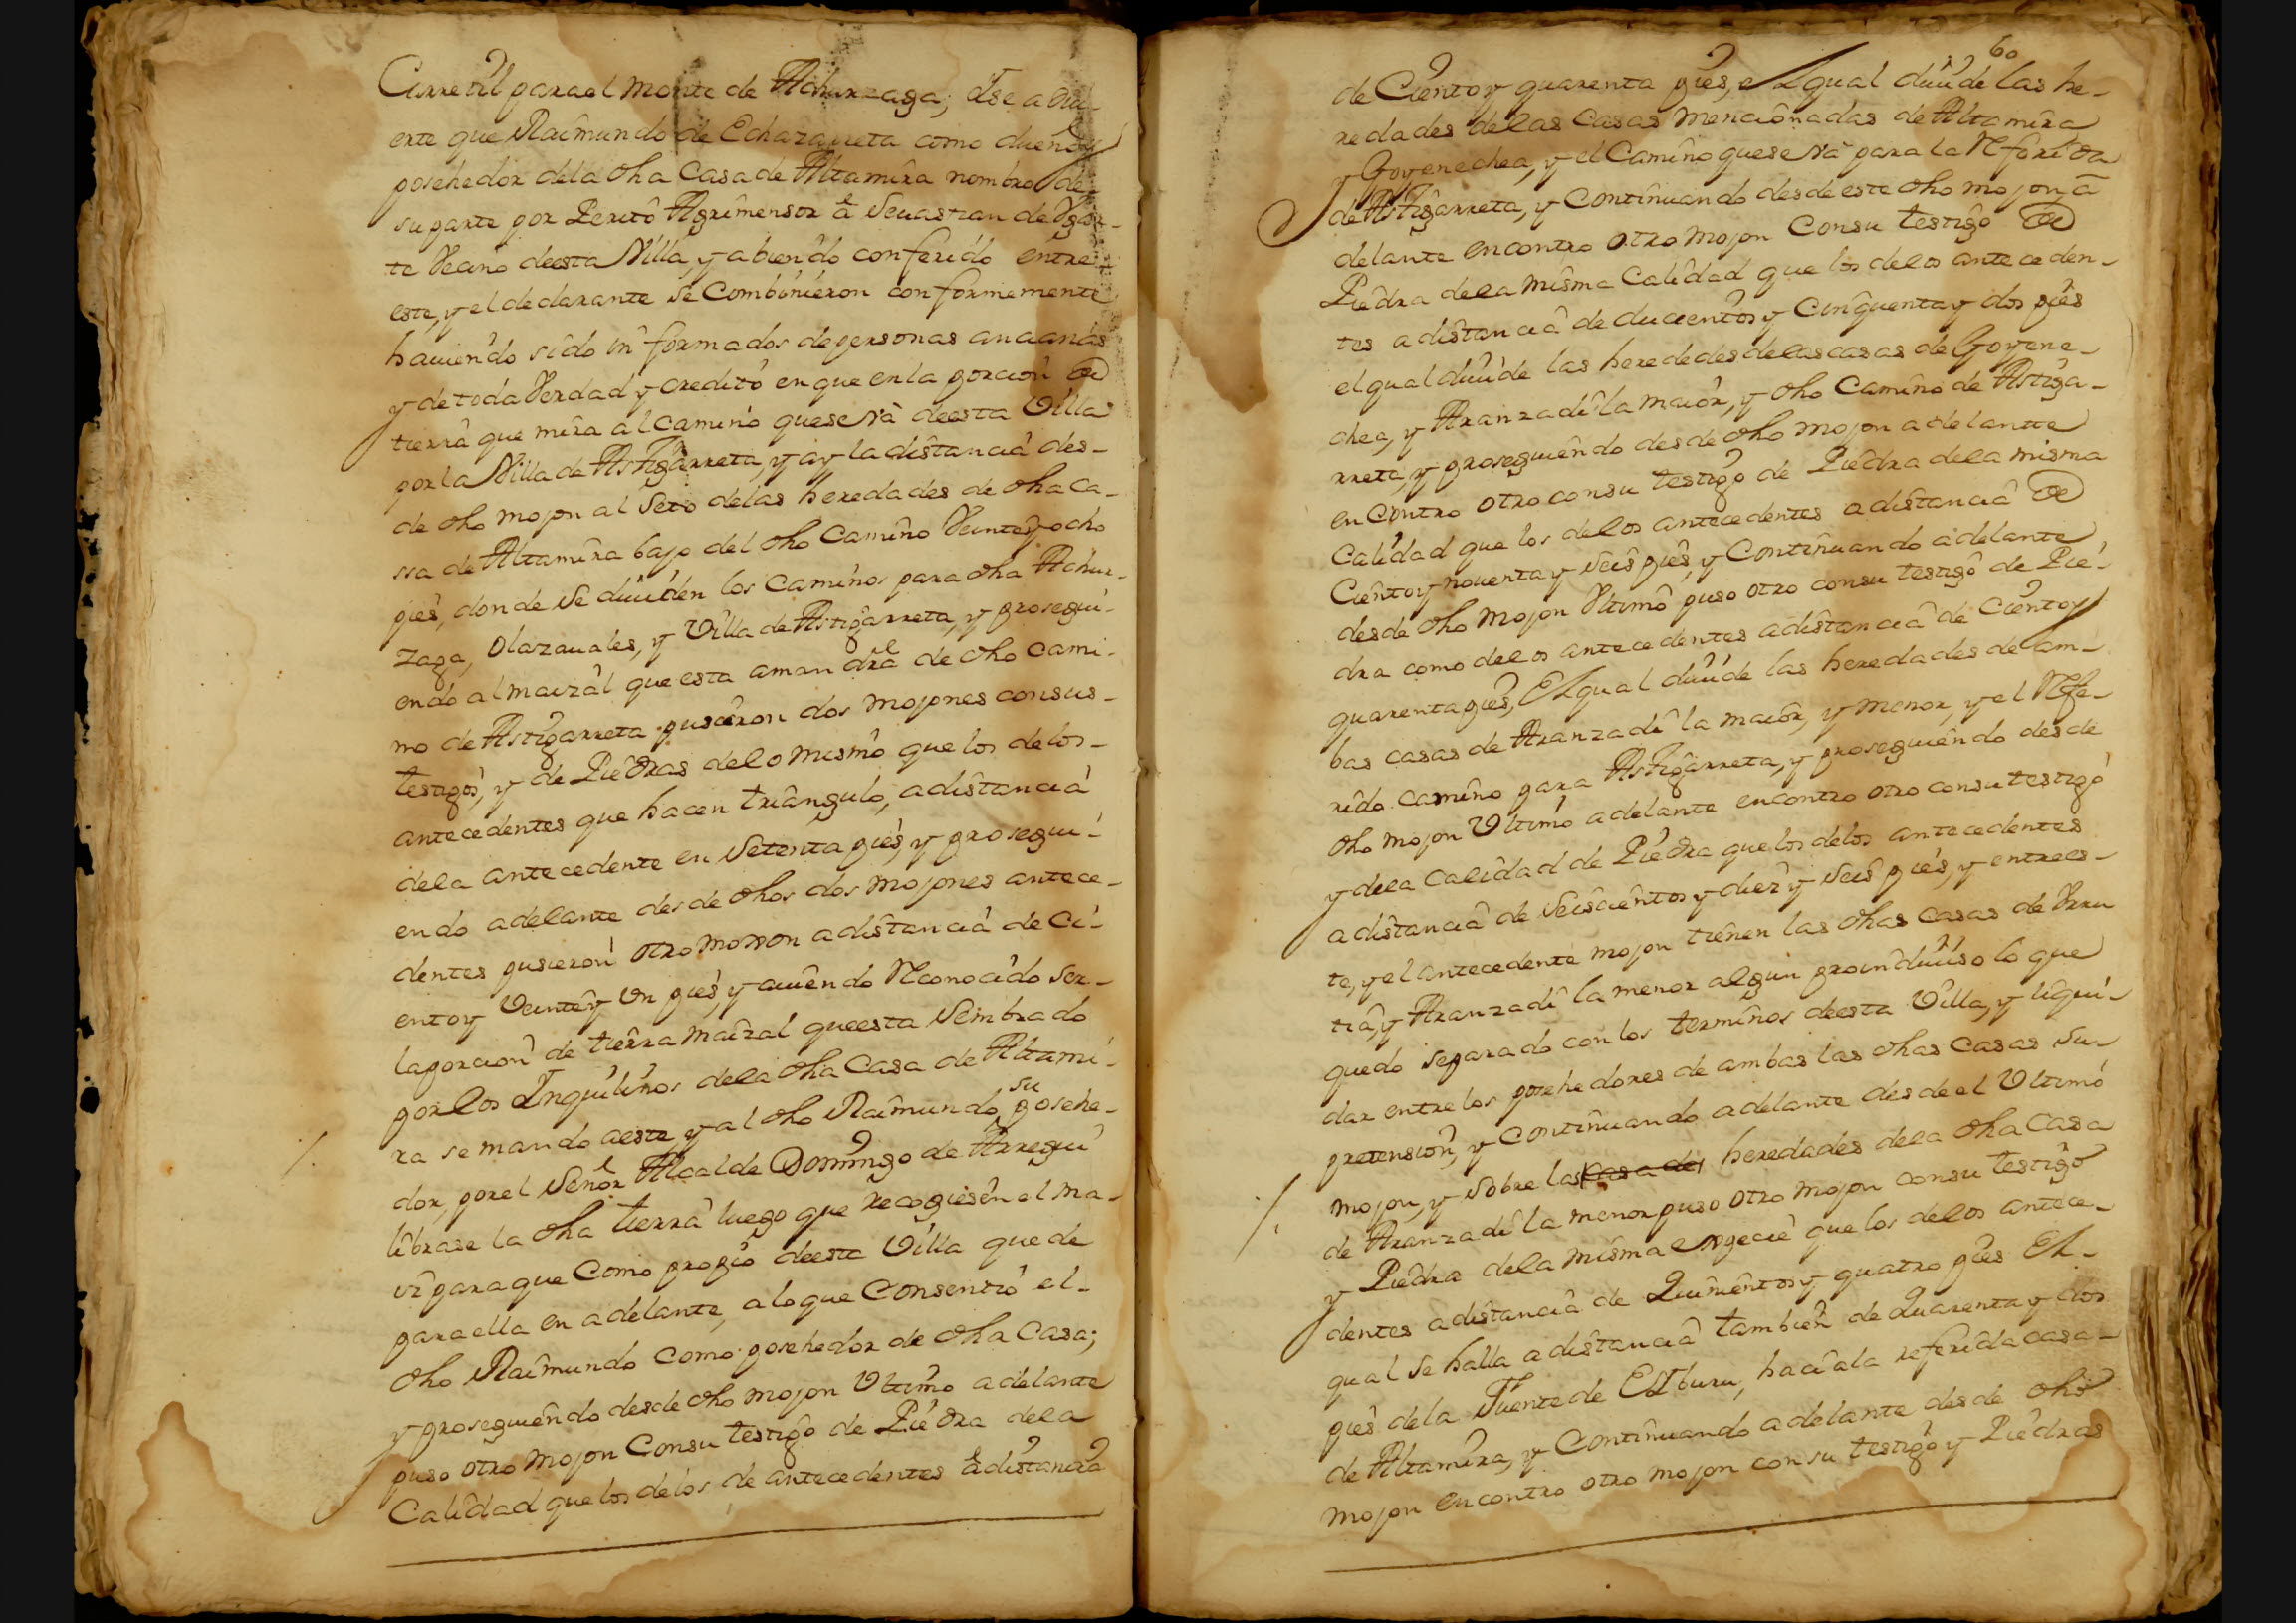 Carretil para el Monte de Achurzaga; è se ad vi-
erte que Raimundo de Echazarreta como dueño y
posehedor dela dha Casa de Altamira nombro de
su parte por Perito Agrimensor à Sevastian de Ugar-
te Vecino de esta Villa, y abiendo conferido entre
este, y el declarante se Combinieron conformemente
haviendo sido informados de personas ancianas
y de toda Verdad y credito en que en la porcion de
tierra que mira al camino que se và de esta Villa
por la Villa de Astigarreta, y ay la distancia des-
de dho mojon al Seto delas heredades de dha ca-
ssa de Altamira bajo del dho Camino Veinte y ocho
pies, donde se dividen los Caminos para dha Achur-
zaga, Olazavales, y Villa de Astigarreta, y prosegui-
endo al maizal que esta a man drã de dho cami-
no de Astigarreta pusieron dos mojones con sus-
testigos, y de Piedras de lo mismo que los de los-
antecedentes que hacen triangulo, a distancia
dela antecedente en Setenta pies, y prosegui-
endo adelante desde dhos dos mojones antece-
dentes pusieron otro mojon a distancia de Ci-
ento y Veinte y Un pies, y aviendo Reconocido ser-
la porcion de tierra maizal que esta Sembrado
por los Inquilinos dela dha Casa de Altami-
ra se mando a este, y al dho Raimundo, su posehe-
dor, por el Señor Alcalde Domingo de Arregui
librase la dha tierra luego que recogiesen el ma-
iz para que como propio de esta Villa quede
para ella en adelante, a lo que Consentio el-
dho Raimundo como posehedor de dha Casa;
y prosiguiendo desde dho mojon Ultimo adelante
puso otro mojon Con su testigo de Piedra dela
Calidad que los de los de antecedentes à distancia
60
de Ciento y quarenta pies, el qual divide las he-
redades de las Casas mencionadas de Altamira
y Goyenechea, y el Camino que se và para la Referida
de Astigarreta, y Continuando desde este dho mojon à
delante encontro otro mojon Con su testigo de
Piedra dela misma Calidad que los delos anteceden-
tes a distancia de ducientos y Cinquenta y dos pies
el qual divide las herededes delas casas de Goyene-
chea, y Aranzadi la maior, y dho Camino de Astiga-
rreta, y prosiguiendo desde dho mojon adelante
encontro otro con su testigo de Piedra dela misma
Calidad que los delos antecedentes a distancia de
Ciento y noventa y Seis pies, y Continuando adelante
desde dho Mojon Ultimo puso otro con su testigo de Pie-
dra como delos antecedentes a distancia de Ciento y
quarenta pies, El qual divide las heredades de am-
bas casas de Aranzadi la maior, y menor, y el Refe-
rido camino para Astigarreta, y prosiguiendo desde
dho mojon Ultimo adelante encontro otro con su testigo
y dela Calidad de Piedra que los delos antecedentes
a distancia de Seiscientos y diez y Seis pies, y entre es-
te, y el antecedente mojon tienen las dhas casas de Urru
tia, y Aranzadi la menor algun proindiviso lo que
quedo separado con los terminos de esta Villa, y liqui-
dar entre los posehedores de ambas las dhas Casas Su-
pretension, y Continuando adelante desde el Ultimo
mojon, y Sobre las casa de heredades dela dha Casa
de Aranzadi la menor puso otro mojon con su testigo
y Piedra dela misma especie que los delos antece-
dentes a distancia de Quinientos y quatro pies El-
qual se halla a distancia tambien de Quarenta y dos
pies dela Fuente de Elzburu, hacia la referida casa-
de Altamira, y Continuando adelante desde dho
mojon encontro otro mojon con su testigo y Piedras